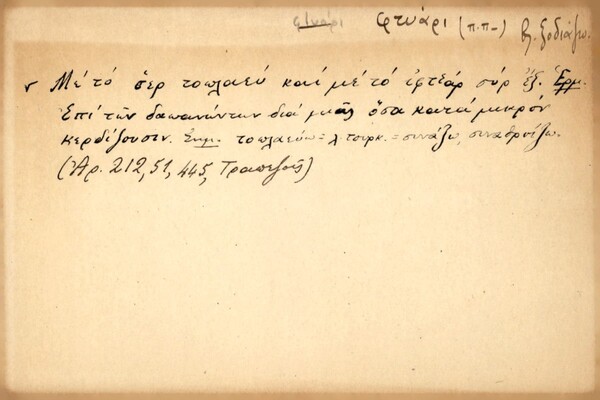 φτυάρι φτυάρι (π.π-) βλ. ξοδιάζω.
Μέ τό σερ τοπλαεύ καί μέ τό φτέαρ σύρ ἔξ. Ἑρμ.
Ἐπί τῶν δαπανώντων διά μιᾶς ὅσα κατά μικρόν
κερδίζουσιν. Σημ. τοπλαεύω = λ. τουρκ. = συνάζω, συναθροίζω.
(Ἀρ. 212, 51, 445, Τραπεζοῦς)